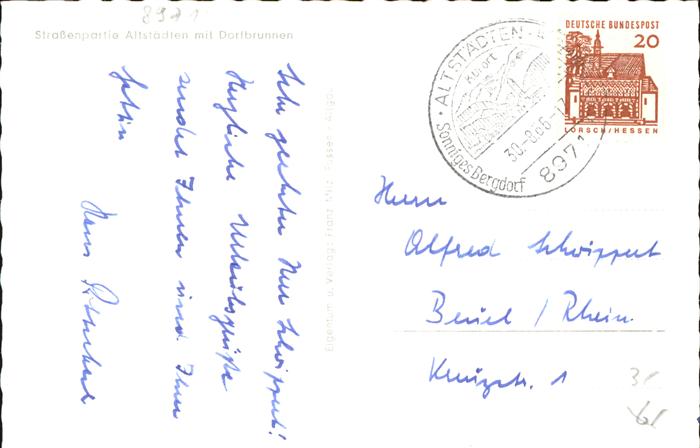 8971
Straßenpartie Altstädten mit Dorfbrunnen
Sehr geehrter Herr Schwippert!
Herzliche Urlaubsgrüße
sendet Ihnen und Ihrer
Gattin
Hans
Eigentum u. Verlag: Franz Milz, Füssen - Allgäu
ALTSTÄDTEN
Kurort
Sonniges Bergdorf
30.-8.65-
8971
DEUTSCHE BUNDESPOST
20
LORSCH/HESSEN
Herrn
Alfred Schwippert
Beuel / Rhein
Kreuzstr. 1